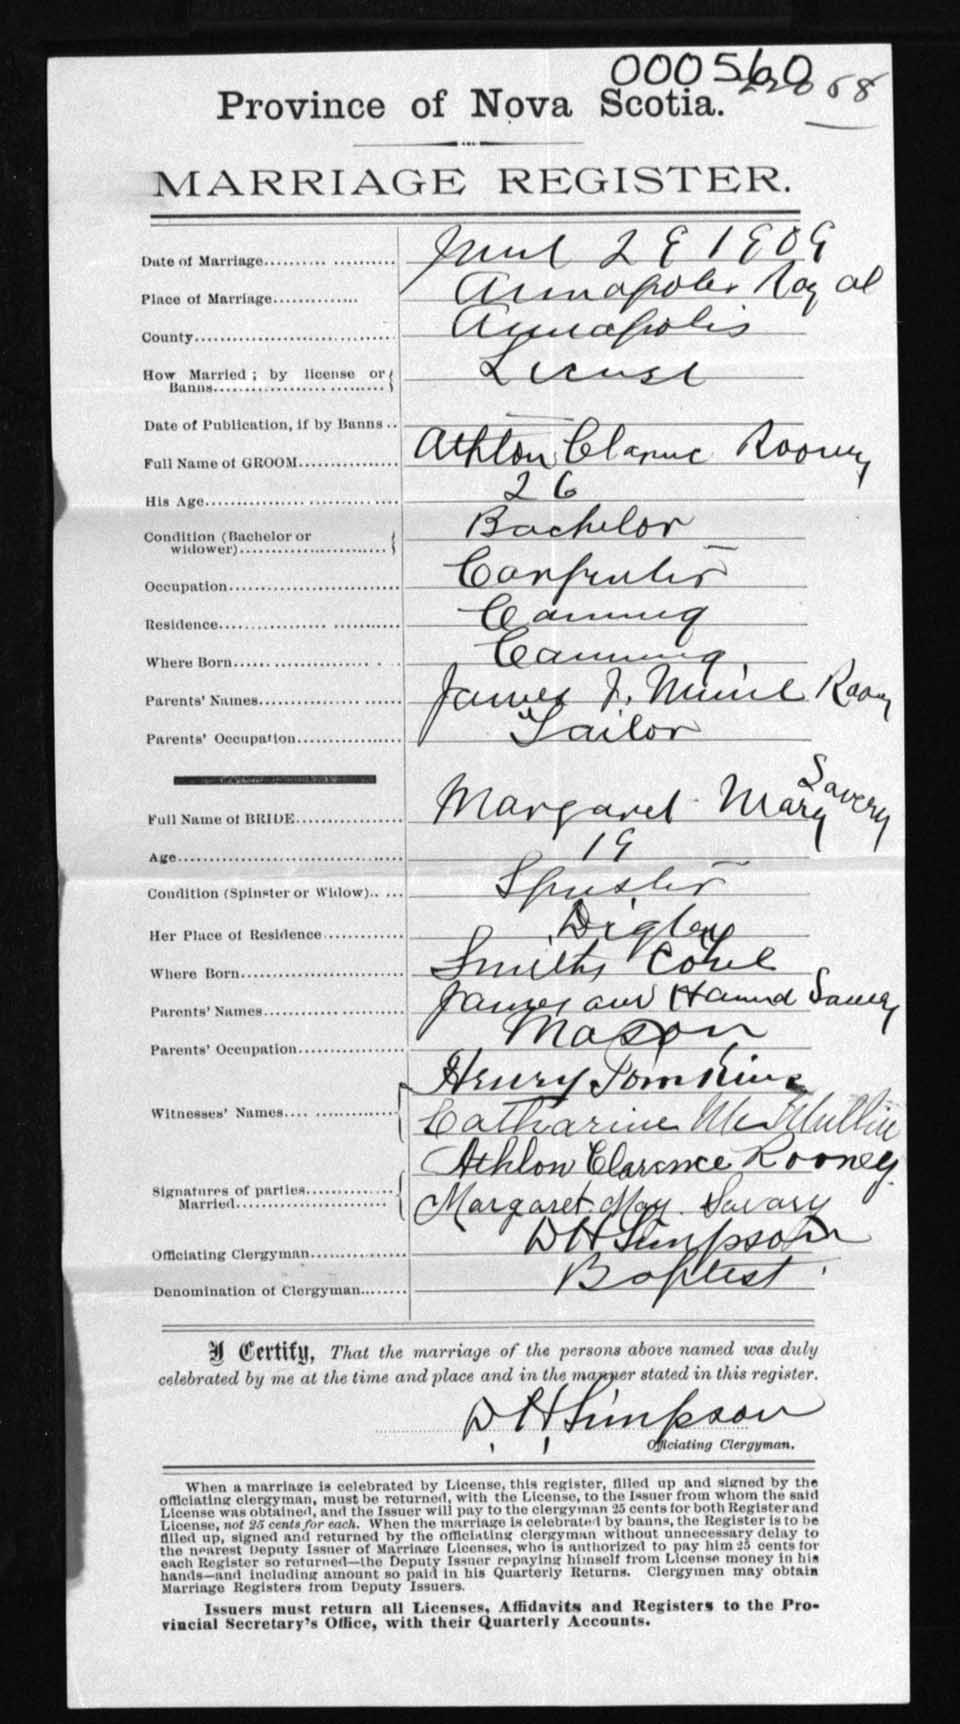 000560
68
Province of Nova Scotia.
MARRIAGE REGISTER.
Date of Marriage.......... ........... 29 1909
Place of Marriage.............. Annapolis Royal
County................................ Annapolis
How Married ; by license or License
Banns.......................................
Date of Publication, if by Banns .. —
Full Name of GROOM................ Athlon Clarence Rooney
His Age............................... 26
Condition (Bachelor or Bachelor
widower)..........................
Occupation............................ Carpenter
Residence.............................. Canning
Where Born............................ Canning
Parents' Names....................... James J. Rooney
Parents' Occupation................ Tailor
Full Name of BRIDE................. Margaret Mary Savery
Age....................................... 19
Condition (Spinster or Widow)..... Spinster
Her Place of Residence............. Digby
Where Born............................ Smiths Cove
Parents' Names....................... James and Savery
Parents' Occupation................ Mason
Henry Tomkins
Witnesses' Names.................... Catharine McMullin
Athlon Clarence Rooney.
Signatures of parties..............
Married........................ Margaret May Savary
Officiating Clergyman.............. D H Simpson
Denomination of Clergyman........ Baptist
I Certify, That the marriage of the persons above named was duly
celebrated by me at the time and place and in the manner stated in this register.
D H Simpson
Officiating Clergyman.
When a marriage is celebrated by License, this register, filled up and signed by the
officiating clergyman, must be returned, with the License, to the Issuer from whom the said
License was obtained, and the Issuer will pay to the clergyman 25 cents for both Register and
License, not 25 cents for each. When the marriage is celebrated by banns, the Register is to be
filled up, signed and returned by the officiating clergyman without unnecessary delay to
the nearest Deputy Issuer of Marriage Licenses, who is authorized to pay him 25 cents for
each Register so returned—the Deputy Issuer repaying himself from License money in his
hands—and including amount so paid in his Quarterly Returns. Clergymen may obtain
Marriage Registers from Deputy Issuers.
Issuers must return all Licenses, Affidavits and Registers to the Pro-
vincial Secretary's Office, with their Quarterly Accounts.